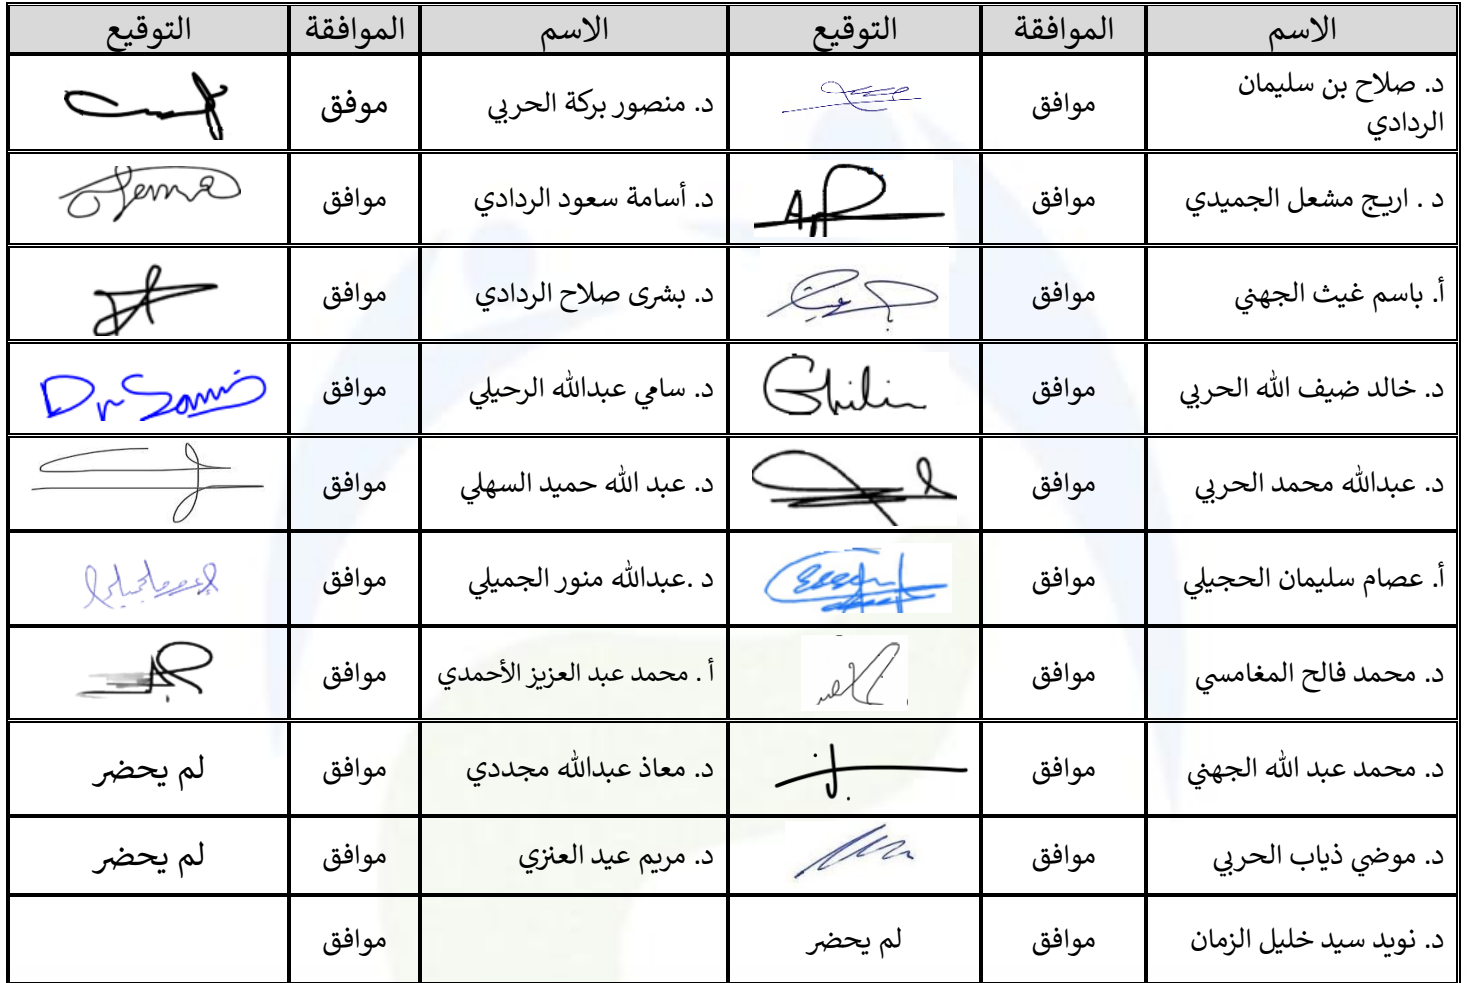 الاسم الموافقة التوقيع الاسم الموافقة التوقيع
د. صلاح بن سليمان الردادي موافق د. منصور بركة الحربي موفق
د . اريج مشعل الجميدي موافق د. أسامة سعود الردادي موافق
أ. باسم غيث الجهني موافق د. بشرى صلاح الردادي موافق
د. خالد ضيف الله الحربي موافق د. سامي عبدالله الرحيلي موافق Dr Sami
د. عبدالله محمد الحربي موافق د. عبد الله حميد السهلي موافق
أ. عصام سليمان الحجيلي موافق د .عبدالله منور الجميلي موافق
د. محمد فالح المغامسي موافق أ . محمد عبد العزيز الأحمدي موافق
د. محمد عبد الله الجهني موافق د. معاذ عبدالله مجددي موافق لم يحضر
د. موضي ذياب الحربي موافق د. مريم عيد العنزي موافق لم يحضر
د. نويد سيد خليل الزمان موافق لم يحضر موافق